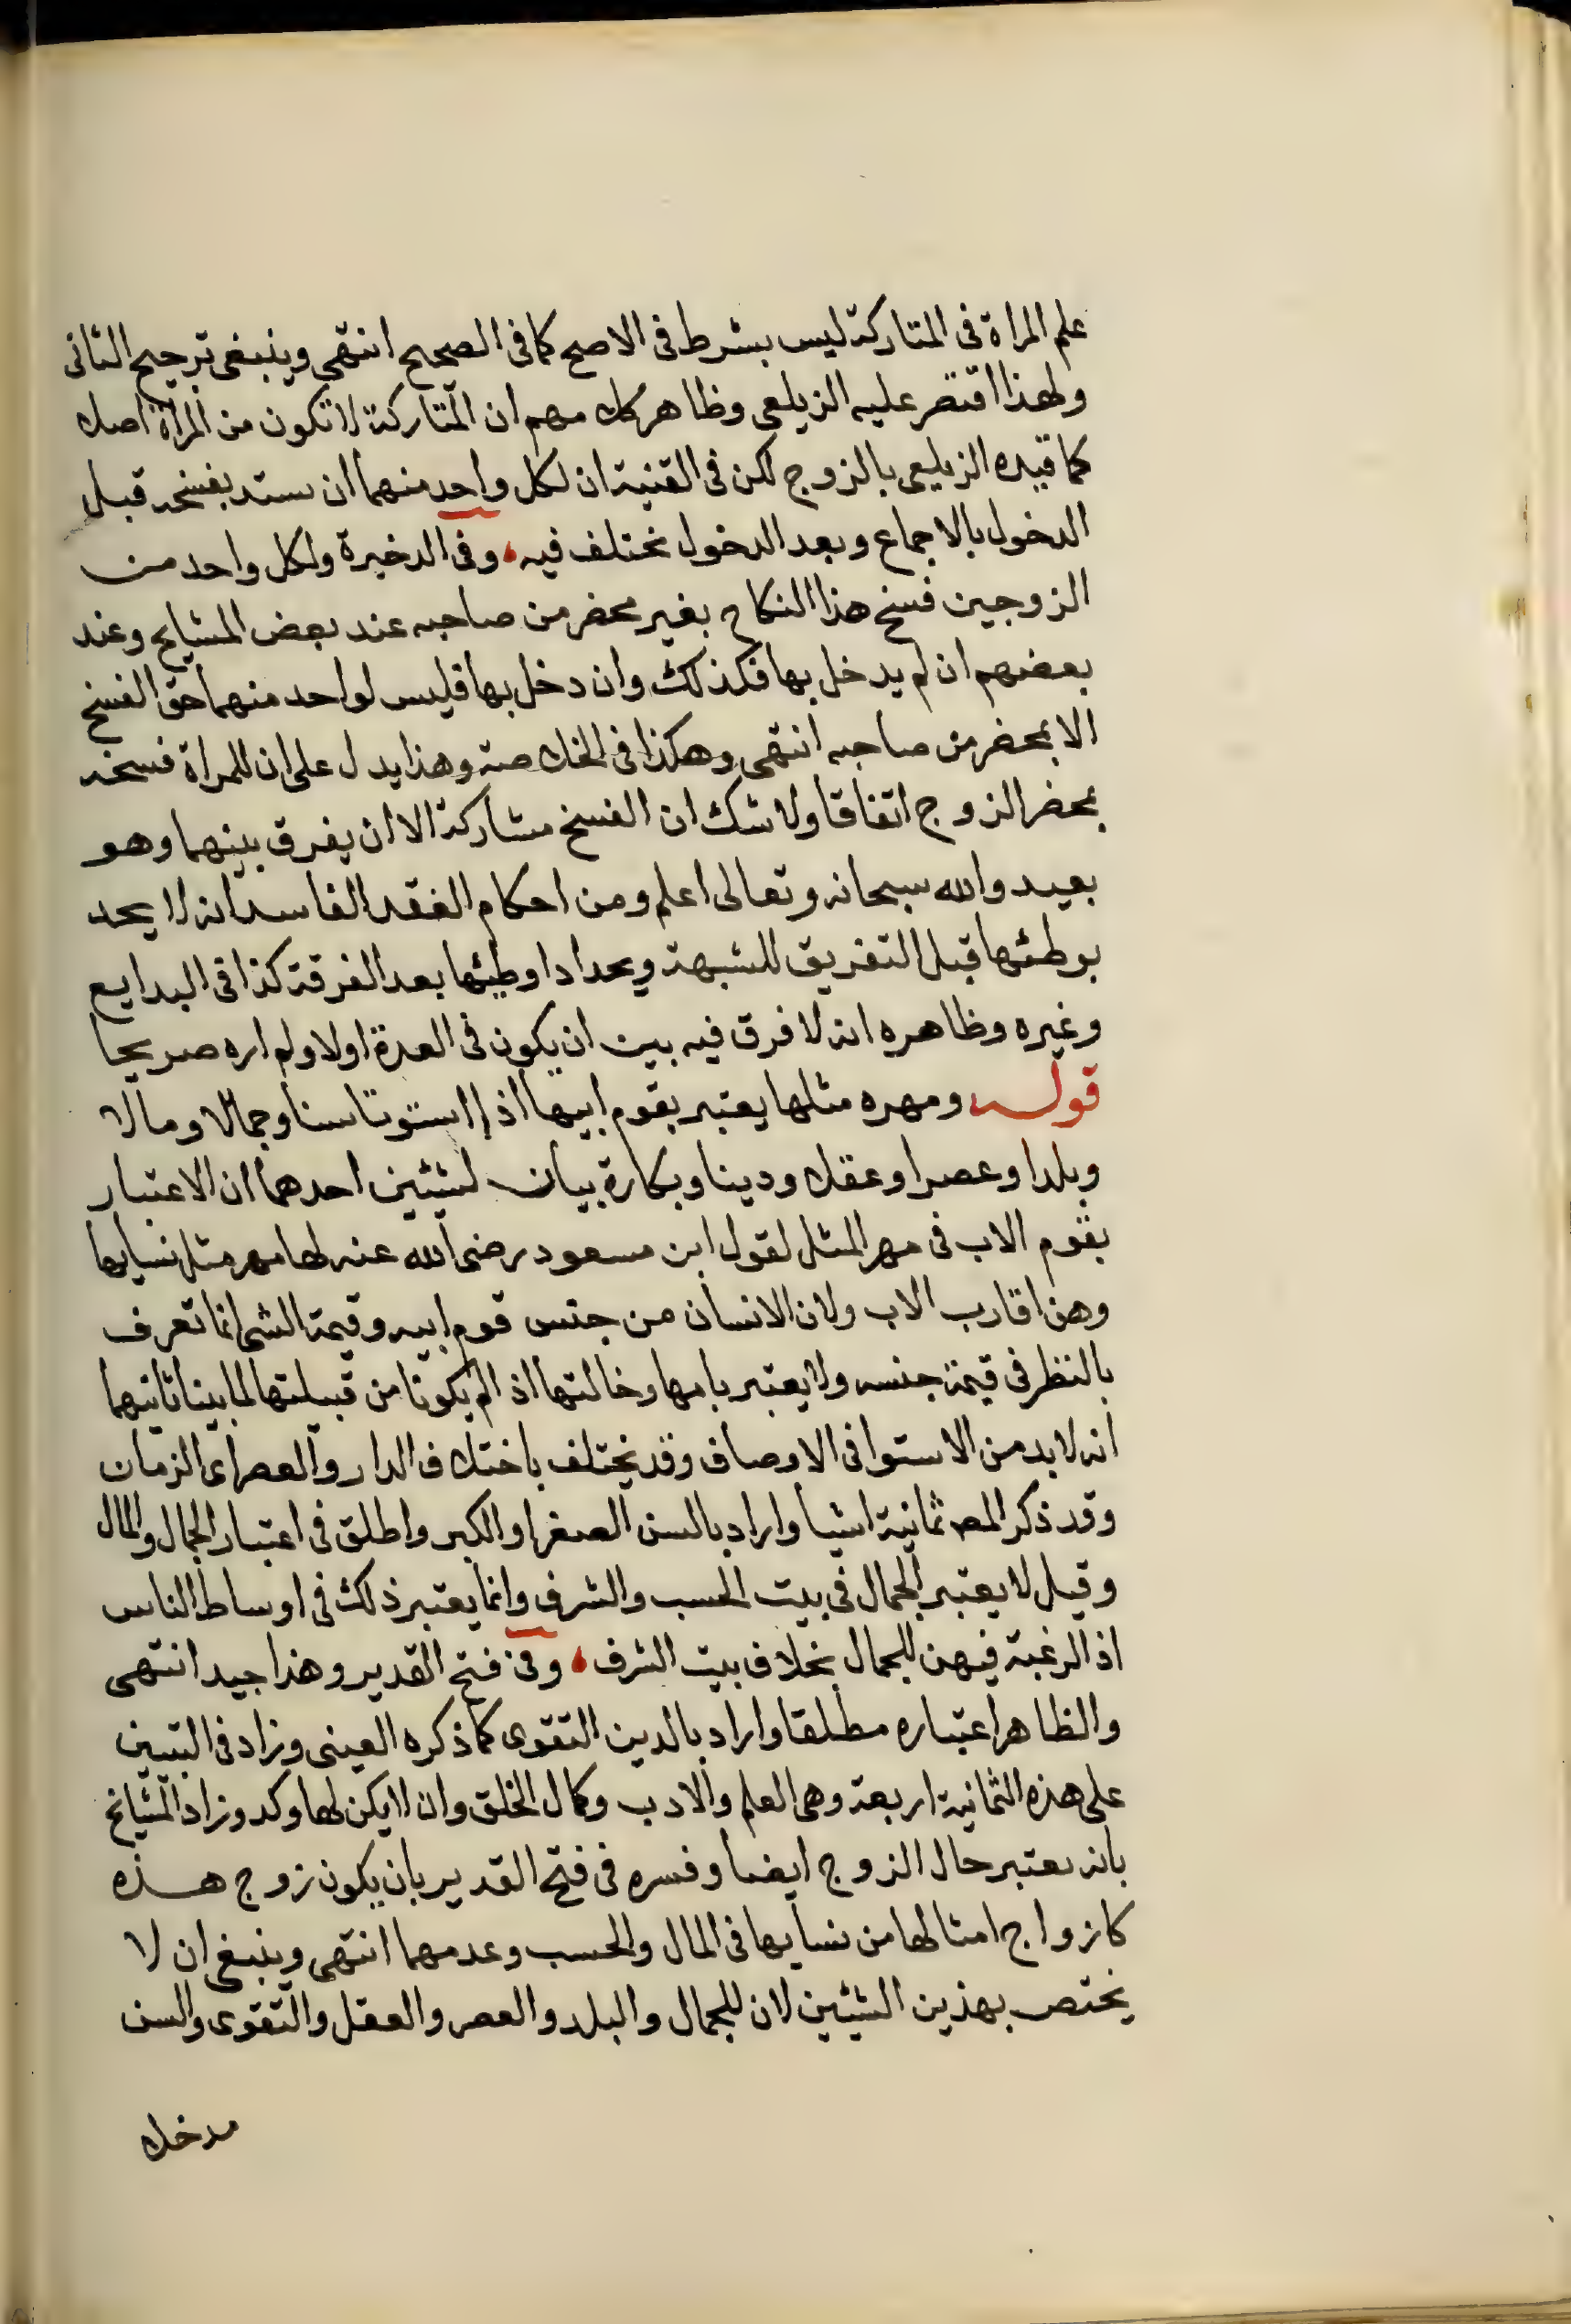 علم المراة فى المتاركة ليس بشرط فى الاصح كما فى الصحيح انتهى وينبغى ترجيح الثانى
ولهذا اقتصر عليه الزيلعى وظاهر كلامهم ان المتاركة لا تكون من المرأة اصلا
كما قيده الزيلعى بالزوج لكن فى القنية ان لكل واحد منهما ان يستبد بفسخه قبل
الدخول بالاجماع وبعد الدخول مختلف فيه، وفى الدخيرة ولكل واحد من
الزوجين فسخ هذا النكاح بغير محضر من صاحبه عند بعض المشايخ وعند
بعضهم ان لم يدخل بها فكذلك وان دخل بها فليس لواحد منهما حق الفسخ
الا بمحضر من صاحبه انتهى وهكذا فى الخلاصة وهذا يدل على ان للمراة فسخه
بمحضر الزوج اتفاقا ولا شك ان الفسخ مشاركة الا ان يفرق بينهما وهو
بعيد والله سبحانه وتعالى اعلم ومن احكام الفقد الفاسد انه لا يحد
بوطئها قبل التفريق للشبهة ويحد اداوطيئها بعد الفرقة كذا فى البدايع
وغيره وظاهره انه لا فرق فيه بين ان يكون فى العدة اولا ولم اره صريحا
قوله ومهره مثلها يعتبر بقوم ابيها اذا استوتا سنا وجمالا ومالا
وبلدا وعصرا وعقلا ودينا وبكارة بيان لشيئين احدهما ان الاعتبار
بقوم الاب فى مهر المثل لقول ابن مسعود رضى الله عنه لها مهر مثل نسايها
وهن اقارب الاب ولان الانسان من جنس قوم ابيه وقيمة الشى انما تعرف
بالنظر فى قيمة جنسه ولا يعتبر بامها وخالتها اذا لم يكونا من قبيلتها لما بينا ثانيهما
انه لا بد من الاستوا فى الاوصاف وقد يختلف باختلاف الدار والعصر اى الزمان
وقد ذكر المص ثمانية اشيا واراد بالسن الصغر او الكبر واطلق فى اعتبار الجمال والمال
وقيل لا يعتبر الجمال فى بيت الحسب والشرف وانما يعتبر ذلك فى اوساط الناس
اذ الرغبة فيهن للجمال بخلاف بيت الشرف، وفى فتح القدير وهذا جيد انتهى
والظاهر اعتباره مطلقا واراد بالدين التقوى كما ذكره العينى وزاد فى التبيين
على هذه الثمانية اربعة وهى العلم والادب وكمال الخلق وان لا يكن لها وكد وزاد المشايخ
بانه يعتبر حال الزوج ايضا وفسره فى فتح القدير بان يكون زوج هذه
كازواج امثالها من نسايها فى المال والحسب وعدمهما انتهى وينبغى ان لا
يختص بهذين الشيئين لان للجمال والبلد والعصر والعقل والتقوى والسن
مدخلا